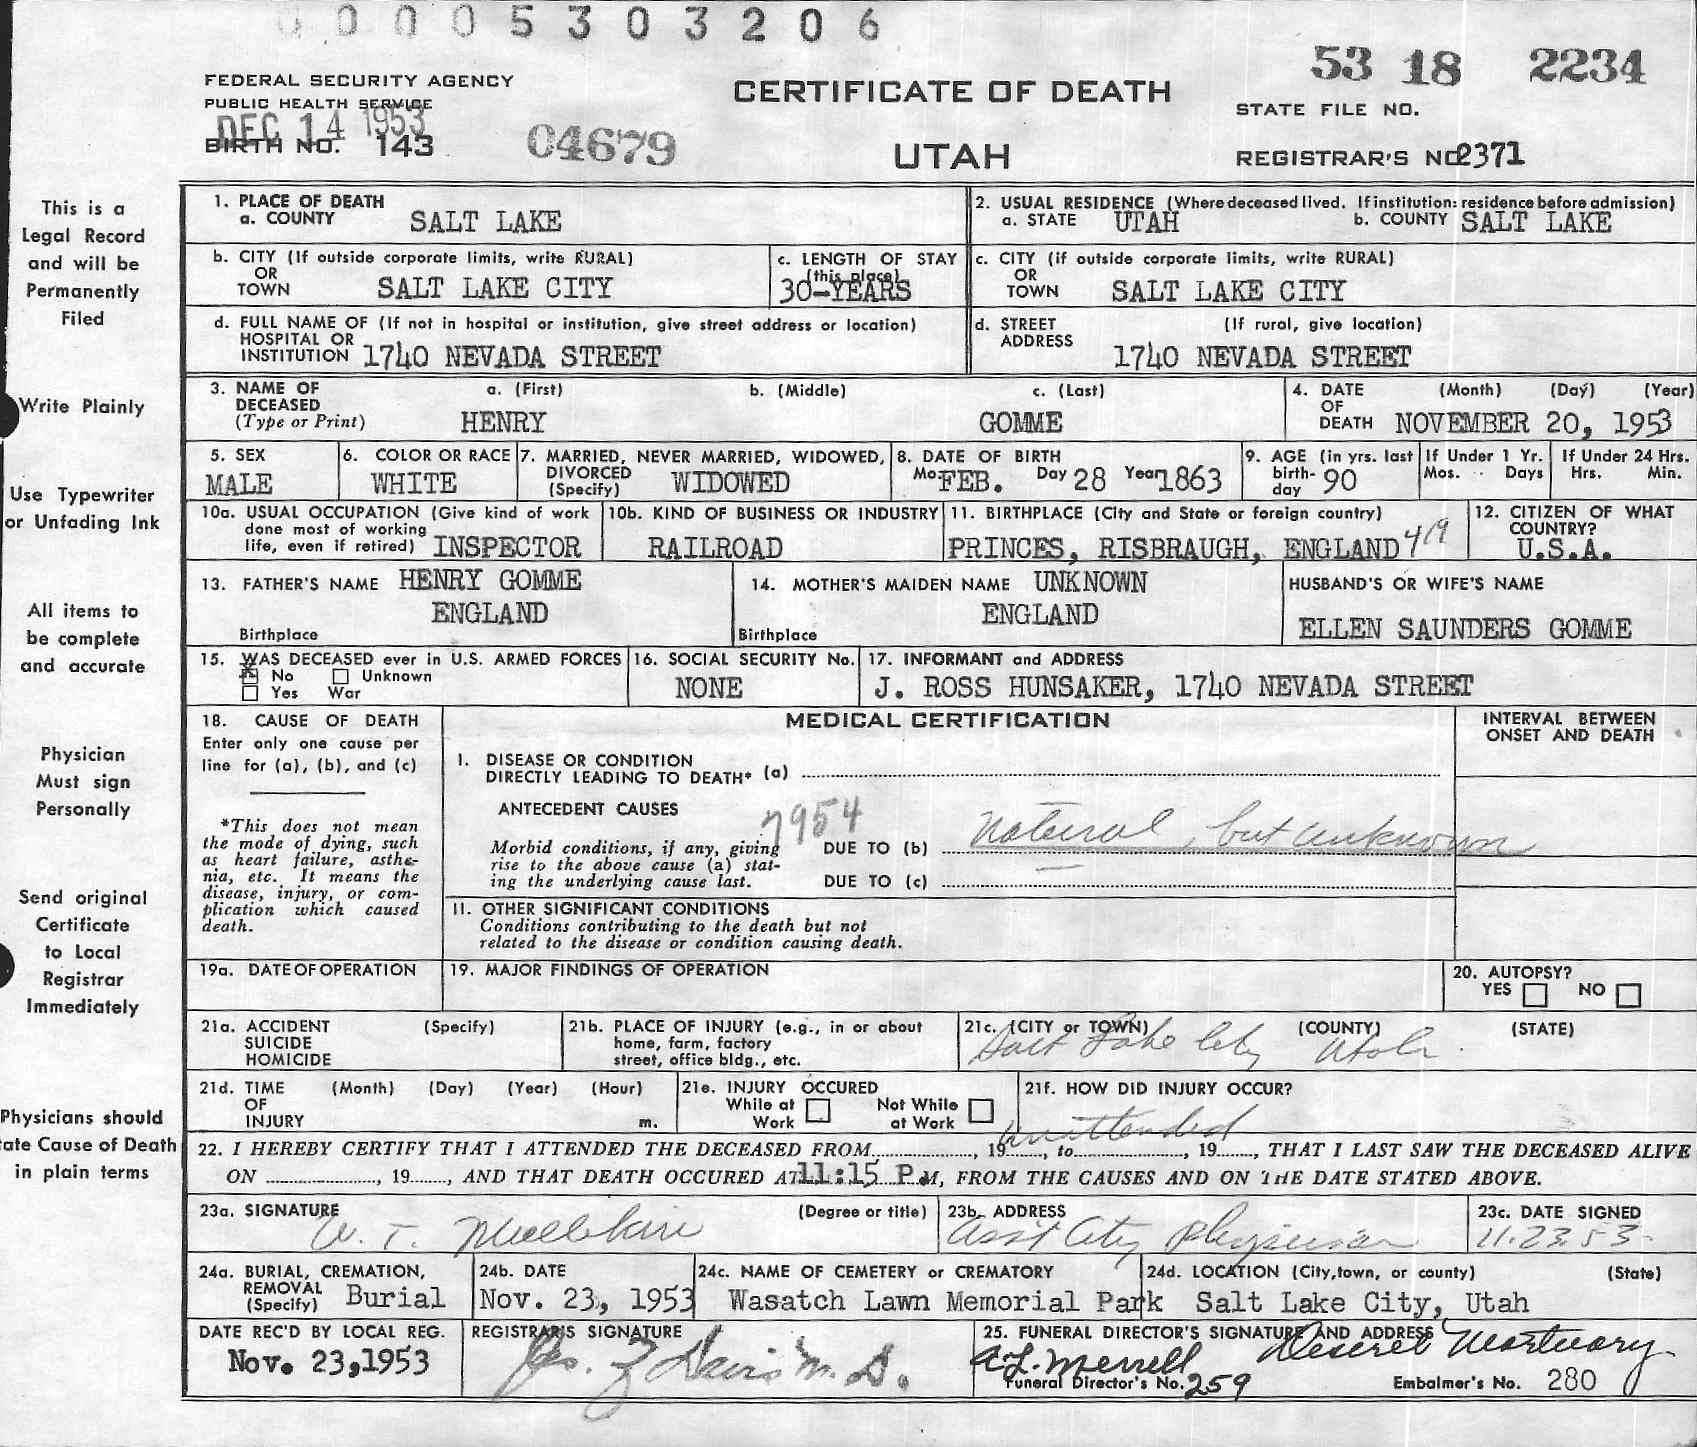 0 0 0 5 3 0 3 2 0 6
53 18 2234
FEDERAL SECURITY AGENCY
PUBLIC HEALTH SERVICE
DEC 14 1953
BIRTH NO. 143
04679
CERTIFICATE OF DEATH
UTAH
STATE FILE NO.
REGISTRAR'S NO 2371
This is a
Legal Record
and will be
Permanently
Filed
Write Plainly
Use Typewriter
or Unfading Ink
All items to
be complete
and accurate
Physician
Must sign
Personally
Send original
Certificate
to Local
Registrar
Immediately
Physicians should
ate Cause of Death
in plain terms
1. PLACE OF DEATH
a. COUNTY SALT LAKE
2. USUAL RESIDENCE (Where deceased lived. If institution: residence before admission)
a. STATE UTAH b. COUNTY SALT LAKE
b. CITY (If outside corporate limits, write RURAL)
OR
TOWN SALT LAKE CITY
c. LENGTH OF STAY
(this place)
30-YEARS
c. CITY (if outside corporate limits, write RURAL)
OR
TOWN SALT LAKE CITY
d. FULL NAME OF (If not in hospital or institution, give street address or location)
HOSPITAL OR
INSTITUTION 1740 NEVADA STREET
d. STREET (If rural, give location)
ADDRESS
1740 NEVADA STREET
3. NAME OF DECEASED a. (First) b. (Middle) c. (Last)
(Type or Print) HENRY GOMME
4. DATE (Month) (Day) (Year)
OF
DEATH NOVEMBER 20, 1953
5. SEX
MALE
6. COLOR OR RACE
WHITE
7. MARRIED, NEVER MARRIED, WIDOWED,
DIVORCED
(Specify) WIDOWED
8. DATE OF BIRTH
Mo FEB. Day 28 Year 1863
9. AGE (in yrs. last
birth-
day 90
If Under 1 Yr.
Mos. Days
If Under 24 Hrs.
Hrs. Min.
10a. USUAL OCCUPATION (Give kind of work
done most of working
life, even if retired) INSPECTOR
10b. KIND OF BUSINESS OR INDUSTRY
RAILROAD
11. BIRTHPLACE (City and State or foreign country)
PRINCES, RISBRAUGH, ENGLAND 419
12. CITIZEN OF WHAT
COUNTRY?
U.S.A.
13. FATHER'S NAME HENRY GOMME
ENGLAND
Birthplace
14. MOTHER'S MAIDEN NAME UNKNOWN
ENGLAND
Birthplace
HUSBAND'S OR WIFE'S NAME
ELLEN SAUNDERS GOMME
15. WAS DECEASED ever in U.S. ARMED FORCES
X No Unknown
Yes War
16. SOCIAL SECURITY No.
NONE
17. INFORMANT and ADDRESS
J. ROSS HUNSAKER, 1740 NEVADA STREET
18. CAUSE OF DEATH
Enter only one cause per
line for (a), (b), and (c)
*This does not mean
the mode of dying, such
as heart failure, asthe-
nia, etc. It means the
disease, injury, or com-
plication which caused
death.
MEDICAL CERTIFICATION
INTERVAL BETWEEN
ONSET AND DEATH
I. DISEASE OR CONDITION
DIRECTLY LEADING TO DEATH* (a)
ANTECEDENT CAUSES
7954
Morbid conditions, if any, giving
rise to the above cause (a) stat-
ing the underlying cause last.
DUE TO (b) Natural, but unknown
DUE TO (c)
11. OTHER SIGNIFICANT CONDITIONS
Conditions contributing to the death but not
related to the disease or condition causing death.
19a. DATE OF OPERATION
19. MAJOR FINDINGS OF OPERATION
20. AUTOPSY?
YES NO
21a. ACCIDENT (Specify)
SUICIDE
HOMICIDE
21b. PLACE OF INJURY (e.g., in or about
home, farm, factory
street, office bldg., etc.
21c. (CITY or TOWN) (COUNTY) (STATE)
Salt Lake City Utah.
21d. TIME (Month) (Day) (Year) (Hour)
OF
INJURY m.
21e. INJURY OCCURED
While at Work
Not While at Work
21f. HOW DID INJURY OCCUR?
unattended
22. I HEREBY CERTIFY THAT I ATTENDED THE DECEASED FROM, 19, to, 19, THAT I LAST SAW THE DECEASED ALIVE
ON, 19, AND THAT DEATH OCCURED AT 11:15 P.M, FROM THE CAUSES AND ON THE DATE STATED ABOVE.
23a. SIGNATURE (Degree or title)
W. T.
23b. ADDRESS
Ass't City Physician
23c. DATE SIGNED
11.23.53
24a. BURIAL, CREMATION,
REMOVAL
(Specify) Burial
24b. DATE
Nov. 23, 1953
24c. NAME OF CEMETERY or CREMATORY
Wasatch Lawn Memorial Park
24d. LOCATION (City, town, or county) (State)
Salt Lake City, Utah
DATE REC'D BY LOCAL REG.
Nov. 23, 1953
REGISTRAR'S SIGNATURE
Jas. Z Davis M.D.
25. FUNERAL DIRECTOR'S SIGNATURE AND ADDRESS
A.L. Merrell Deseret Mortuary
Funeral Director's No. 259
Embalmer's No. 280